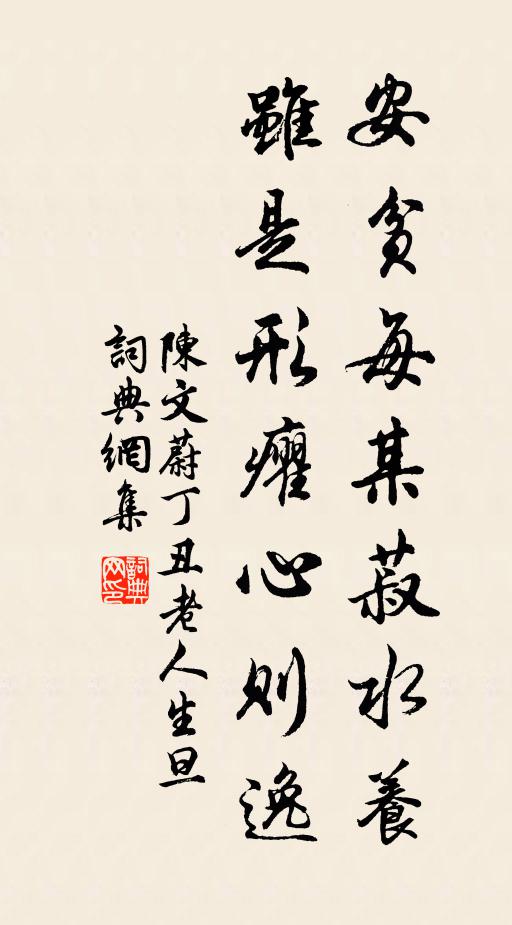 安貧每某菽水養
雖是形癯心則逸
陳文蔚丁丑老人生旦
詞典網集
詞典网印